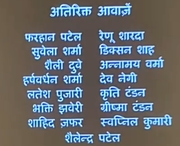 अतिरिक्त आवाज़ें
फरहान पटेल रेणू शारदा
सुवेला शर्मा डिक्सन शाह
शैली दुवे अन्नामय वर्मा
हर्षवर्धन शर्मा देव नेगी
लतेश पुजारी कृति टंडन
भक्ति झवेरी ग्रीष्मा टंडन
शाहिद ज़फर स्वप्निल कुमारी
शैलेन्द्र पटेल